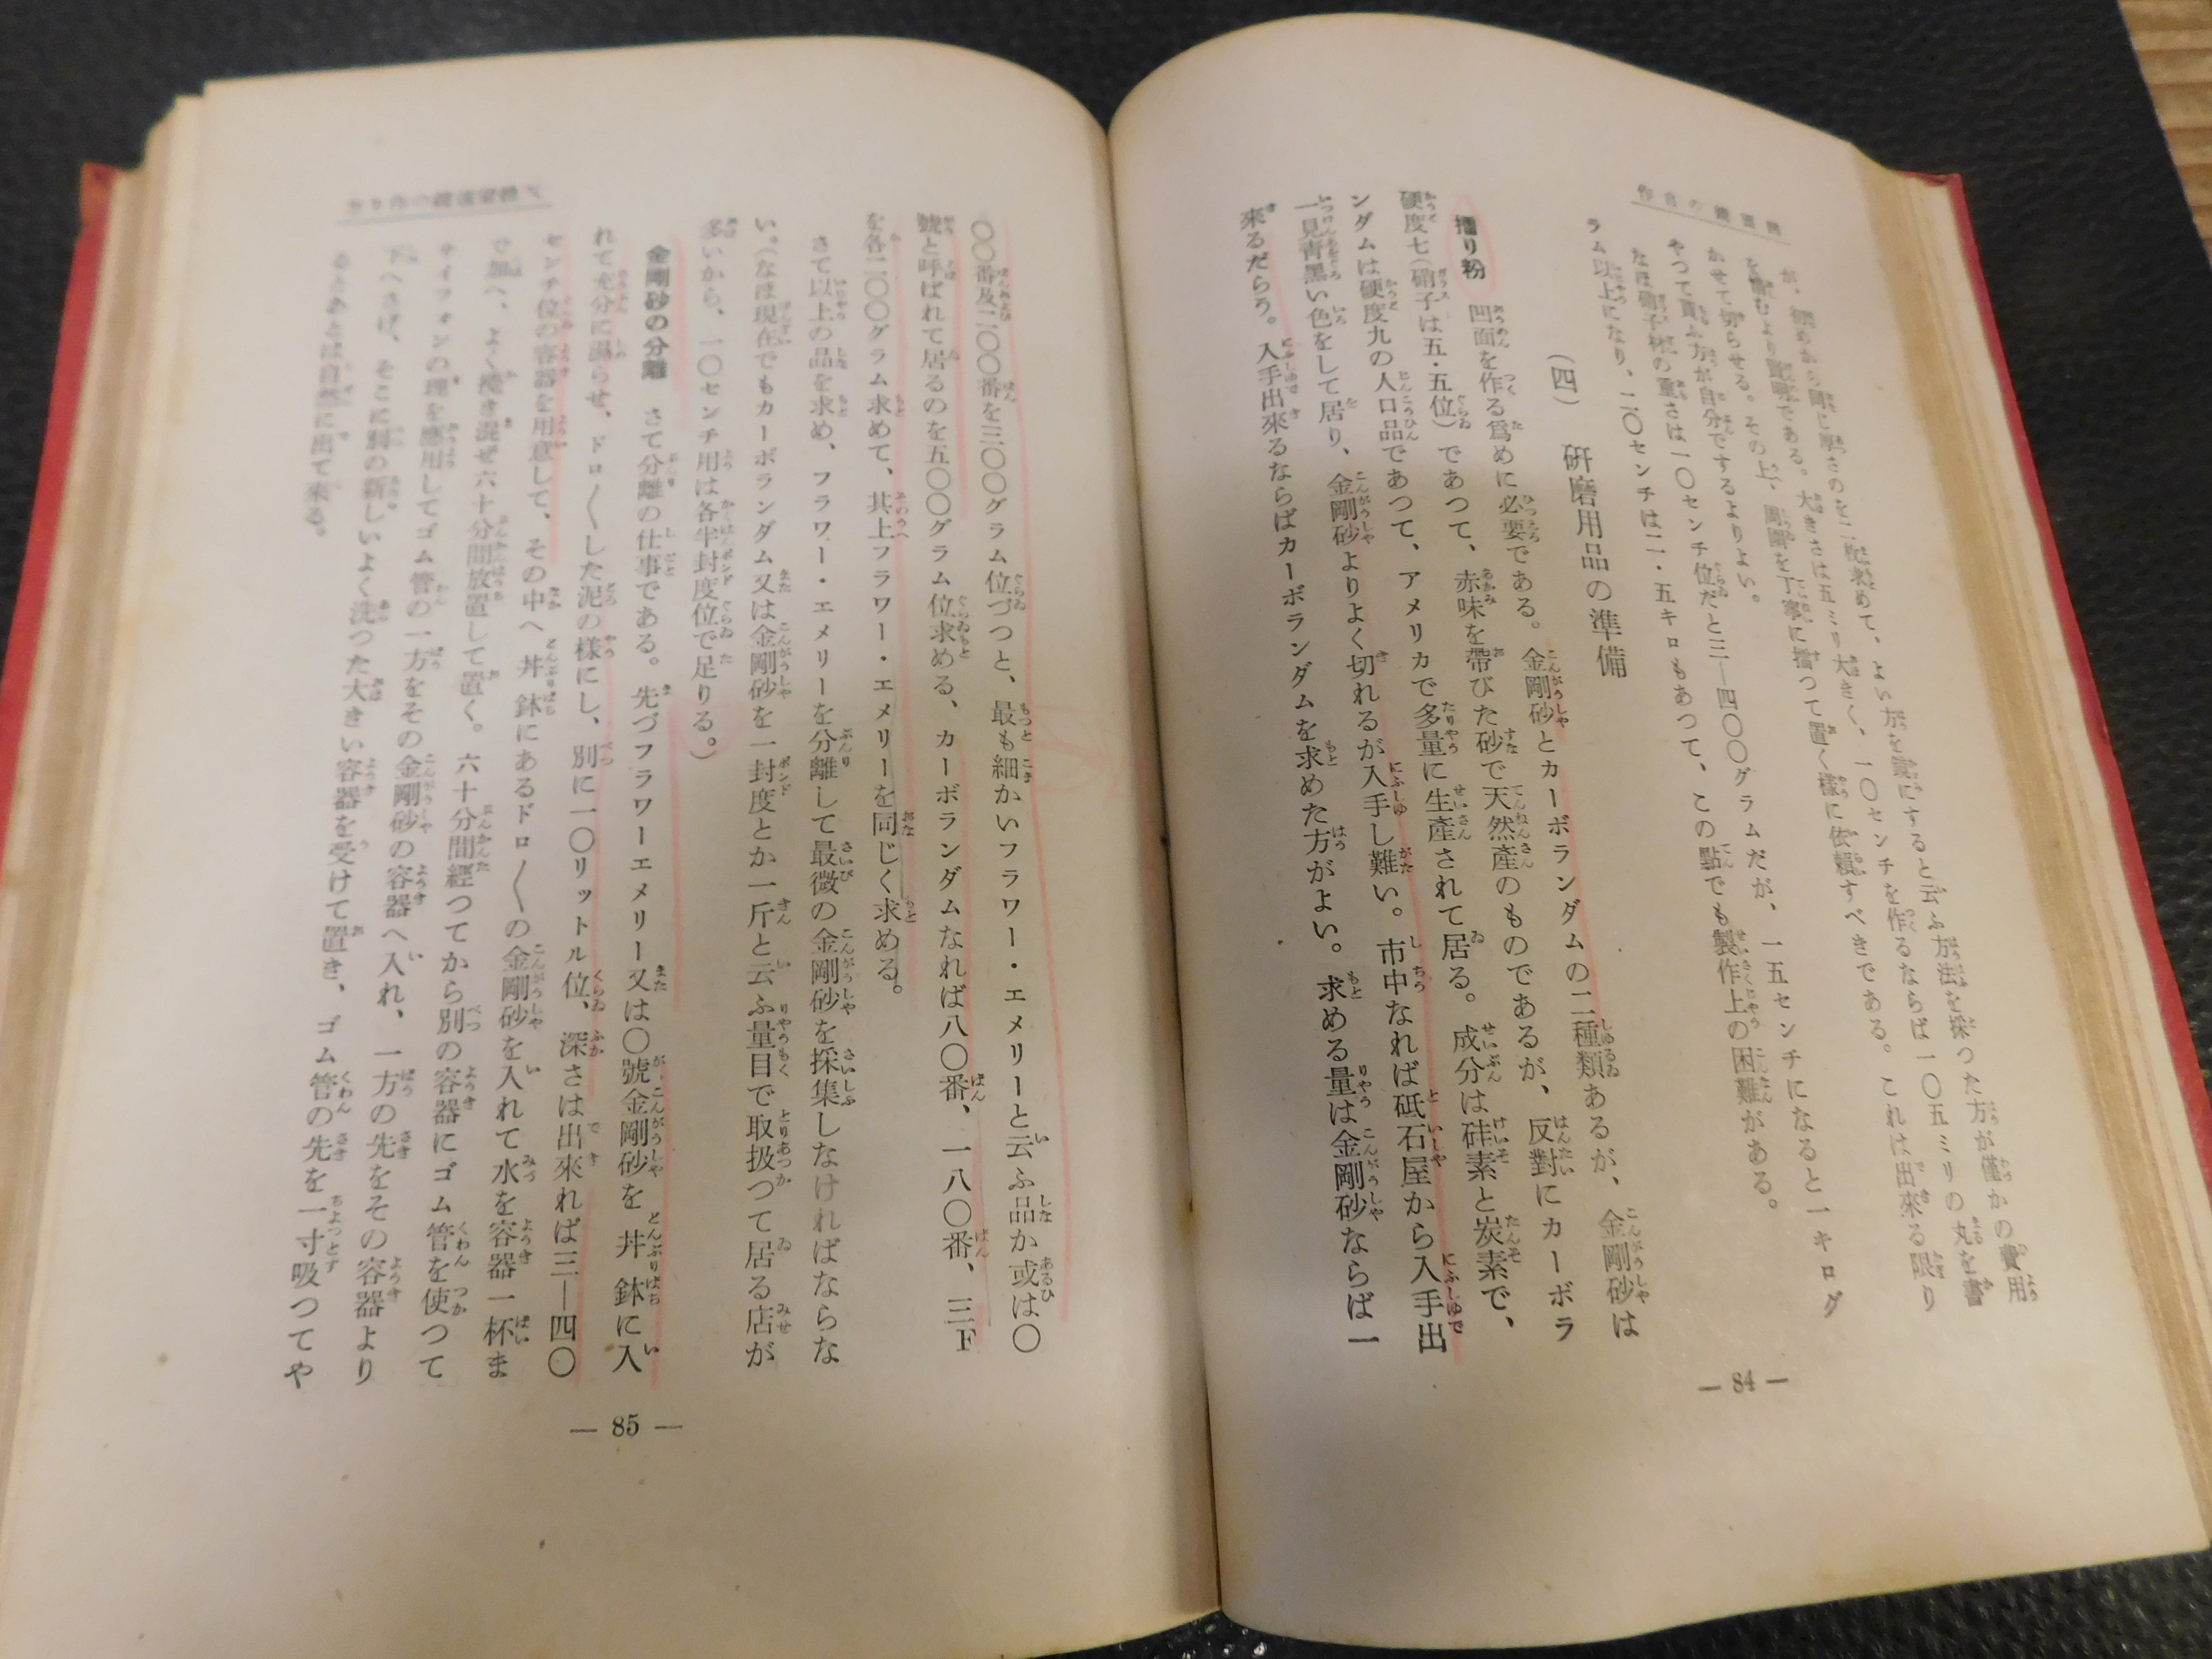 が、初めから同じ厚さのを二枚求めて、よい方を鏡にすると云ふ方法を採つた方が僅かの費用
を惜むより賢明である。大きさは五ミリ大きく、一〇センチを作るならば一〇五ミリの丸を書
かせて切らせる。その上、周圍を丁寧に擂つて置く樣に依賴すべきである。これは出來る限り
やつて貰ふ方が自分でするよりよい。
なほ硝子材の重さは一〇センチ位だと三—四〇〇グラムだが、一五センチになると一キログ
ラム以上になり、二〇センチは二・五キロもあつて、この點でも製作上の困難がある。
(四) 硏磨用品の準備
擂り粉 凹面を作る爲めに必要である。金剛砂とカーボランダムの二種類あるが、金剛砂は
硬度七(硝子は五・五位)であつて、赤味を帶びた砂で天然產のものであるが、反對にカーボラ
ンダムは硬度九の人口品であつて、アメリカで多量に生產されて居る。成分は硅素と炭素で、
一見靑黑い色をして居り、金剛砂よりよく切れるが入手し難い。市中なれば砥石屋から入手出
來るだらう。入手出來るならばカーボランダムを求めた方がよい。求める量は金剛砂ならば一
— 84 —
〇〇番及二〇〇番を三〇〇グラム位づつと、最も細かいフラワー・エメリーと云ふ品か或は〇
號と呼ばれて居るのを五〇〇グラム位求める、カーボランダムなれば八〇番、一八〇番、三F
を各二〇〇グラム求めて、其上フラワー・エメリーを同じく求める。
さて以上の品を求め、フラワー・エメリーを分離して最微の金剛砂を採集しなければならな
い。(なほ現在でもカーボランダム又は金剛砂を一封度とか一斤と云ふ量目で取扱つて居る店が
多いから、一〇センチ用は各半封度位で足りる。)
金剛砂の分離 さて分離の仕事である。先づフラワーエメリー又は〇號金剛砂を丼鉢に入
れて充分に濕らせ、ドロ〱した泥の樣にし、別に一〇リットル位、深さは出來れば三—四〇
センチ位の容器を用意して、その中へ丼鉢にあるドロ〱の金剛砂を入れて水を容器一杯ま
で加へ、よく攪き混ぜ六十分間放置して置く。六十分間經つてから別の容器にゴム管を使つて
サイフォンの理を應用してゴム管の一方をその金剛砂の容器へ入れ、一方の先をその容器より
下へさげ、そこに別の新しいよく洗つた大きい容器を受けて置き、ゴム管の先を一寸吸つてや
るとあとは自然に出て來る。
— 85 —